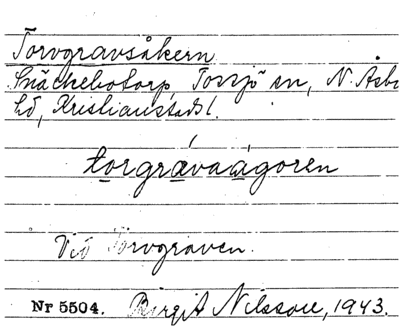 Torvgravsåkern
Snäckebotorp, Tossjö sn, N. Åsbo
hd, Kristianstads l.
torgravaågoren
Vid Torvgraven.
Nr 5504. Birgit Nilsson, 1943.